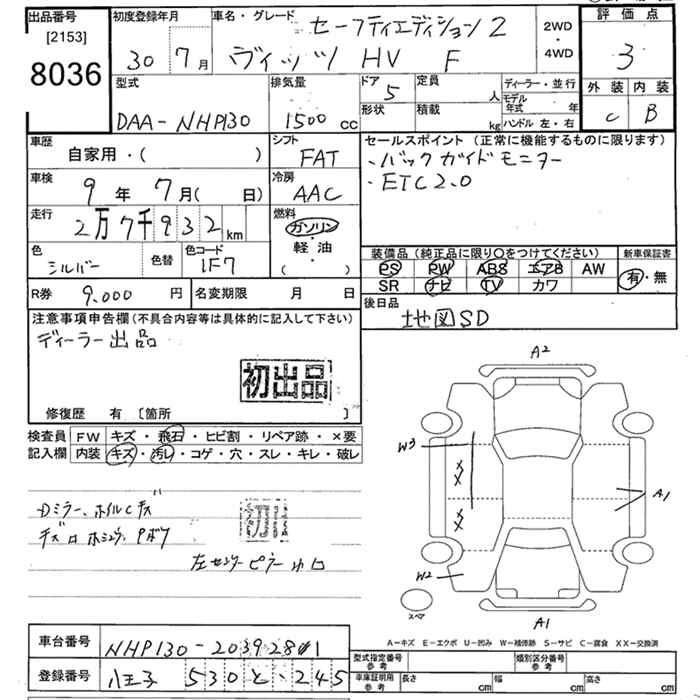 出品番号 初度登録年月 車名・グレード セーフティエディション2 2WD・4WD 評価点
[2153] 30 7月 ヴィッツ HV F 3
8036
型式 排気量 ドア 5 定員 人 ディーラー・並行 外装 内装
DAA-NHP130 1500 cc 形状 積載 kg モデル年式 年 C B
ハンドル 左・右
車歴 シフト セールスポイント (正常に機能するものに限ります)
自家用・( ) FAT ・バックガイドモニター
車検 冷房 ・ETC2.0
9年 7月( 日) AAC
走行 燃料
2万7千932km ガソリン・軽・油 ( )
装備品 (純正品に限り○をつけてください) 新車保証書
色 色替 色コード PS PW ABS エアB AW 有・無
シルバー 1F7 SR ナビ TV カワ
R券 9.000 円 名変期限 月 日 後日品
地図SD
注意事項申告欄(不具合内容等は具体的に記入して下さい)
ディーラー出品
初出品
修復歴 有 [箇所 ]
検査員 FW キズ・飛石・ヒビ割・リペア跡・×要
記入欄 内装 キズ・汚レ・コゲ・穴・スレ・キレ・破レ
A2
W3
A1
W2
スペア
A1
Dミラー、ホイルCキズ
初出
左センターピラー小凹
A-キズ E-エクボ U-凹み W-補修跡 S-サビ C-腐食 XX-交換済
車台番号 NHP130-2039281 型式指定番号 参考 類別区分番号 参考
登録番号 八王子 530 と ・245 車庫証明用 参考 長さ cm 幅 cm 高さ cm